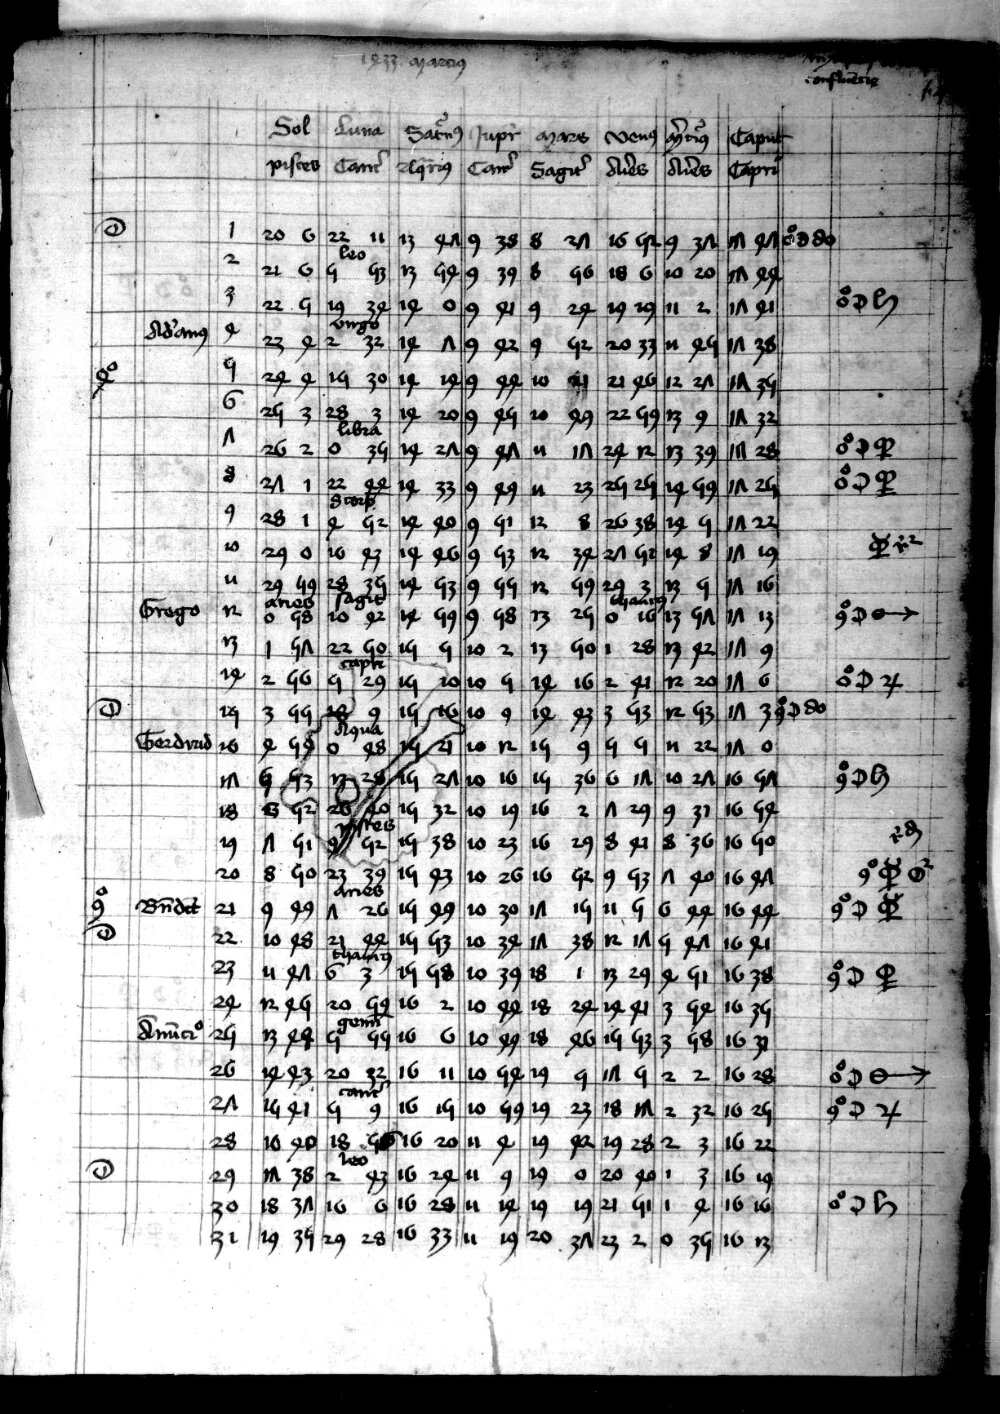 1433 Marcius
Confluencie
Sol Luna Satnus Jupr Mars Venus Mcius Caput
pisces Canc Aqrius Canc Sagit Aries Aries Capri
1 20 6 22 11 13 47 9 38 8 27 16 52 9 37 17 47 ☍ ☽
leo
2 21 6 5 53 13 54 9 39 8 56 18 6 10 20 17 44
3 22 5 19 34 14 0 9 41 9 24 19 19 11 2 17 41 ☍ ☽ ♄
virgo
Adrianus 4 23 4 2 32 14 7 9 42 9 52 20 33 11 45 17 38
☍ 5 24 4 15 30 14 14 9 44 10 21 21 46 12 27 17 35
6 25 3 28 3 14 20 9 45 10 49 22 59 13 9 17 32
libra
7 26 2 0 35 14 27 9 47 11 17 24 12 13 39 17 28 ☍ ☽ ♀
8 27 1 22 44 14 33 9 49 11 23 25 25 14 59 17 25 ☍ ☽ ♀
Scorp
9 28 1 4 52 14 40 9 51 12 8 26 38 14 5 17 22
10 29 0 16 43 14 46 9 53 12 34 27 52 14 8 17 19 ☿
11 29 59 28 35 14 53 9 55 12 59 29 3 13 5 17 16
aries sagit thaurus
Grego 12 0 58 10 42 14 59 9 58 13 25 0 16 13 57 17 13 ☌ ☽ ♂
13 1 57 22 50 15 5 10 2 13 50 1 28 13 42 17 9
capri
14 2 56 5 29 15 10 10 5 14 16 2 41 12 20 17 6 ☍ ☽ ♃
15 3 55 18 9 15 16 10 9 14 43 3 53 12 53 17 3 ☌ ☽
Aqua
Gerdrud 16 4 54 0 48 15 21 10 12 15 9 5 5 11 22 17 0
17 5 53 13 28 15 27 10 16 15 36 6 17 10 27 16 57 ☌ ☽ ♄
18 6 52 26 40 15 32 10 19 16 2 7 29 9 31 16 54
pisces
19 7 51 9 52 15 38 10 23 16 29 8 41 8 36 16 50
20 8 50 23 39 15 43 10 26 16 52 9 53 7 40 16 47 ☌ ☿
aries
☌ Bndct 21 9 49 7 26 15 49 10 30 17 15 11 5 6 44 16 44 ☌ ☽ ☿
22 10 48 21 44 15 53 10 34 17 38 12 17 5 47 16 41
thaurus
23 11 47 6 3 15 58 10 39 18 1 13 29 4 51 16 38 ☌ ☽ ♀
24 12 45 20 59 16 2 10 44 18 24 14 41 3 54 16 35
gemi
Anuncio 25 13 44 5 55 16 6 10 49 18 46 15 53 3 58 16 31
26 14 43 20 32 16 11 10 54 19 5 17 5 2 2 16 28 ☍ ☽ ♂
canc
27 15 41 5 9 16 15 10 59 19 23 18 17 2 32 16 25 ☌ ☽ ♃
28 16 40 18 56 16 20 11 4 19 42 19 28 2 3 16 22
leo
29 17 38 2 43 16 24 11 9 19 0 20 40 1 3 16 19
30 18 37 16 6 16 28 11 14 19 19 21 51 1 4 16 16 ☍ ☽ ♄
31 19 35 29 28 16 33 11 19 20 37 23 2 0 35 16 13